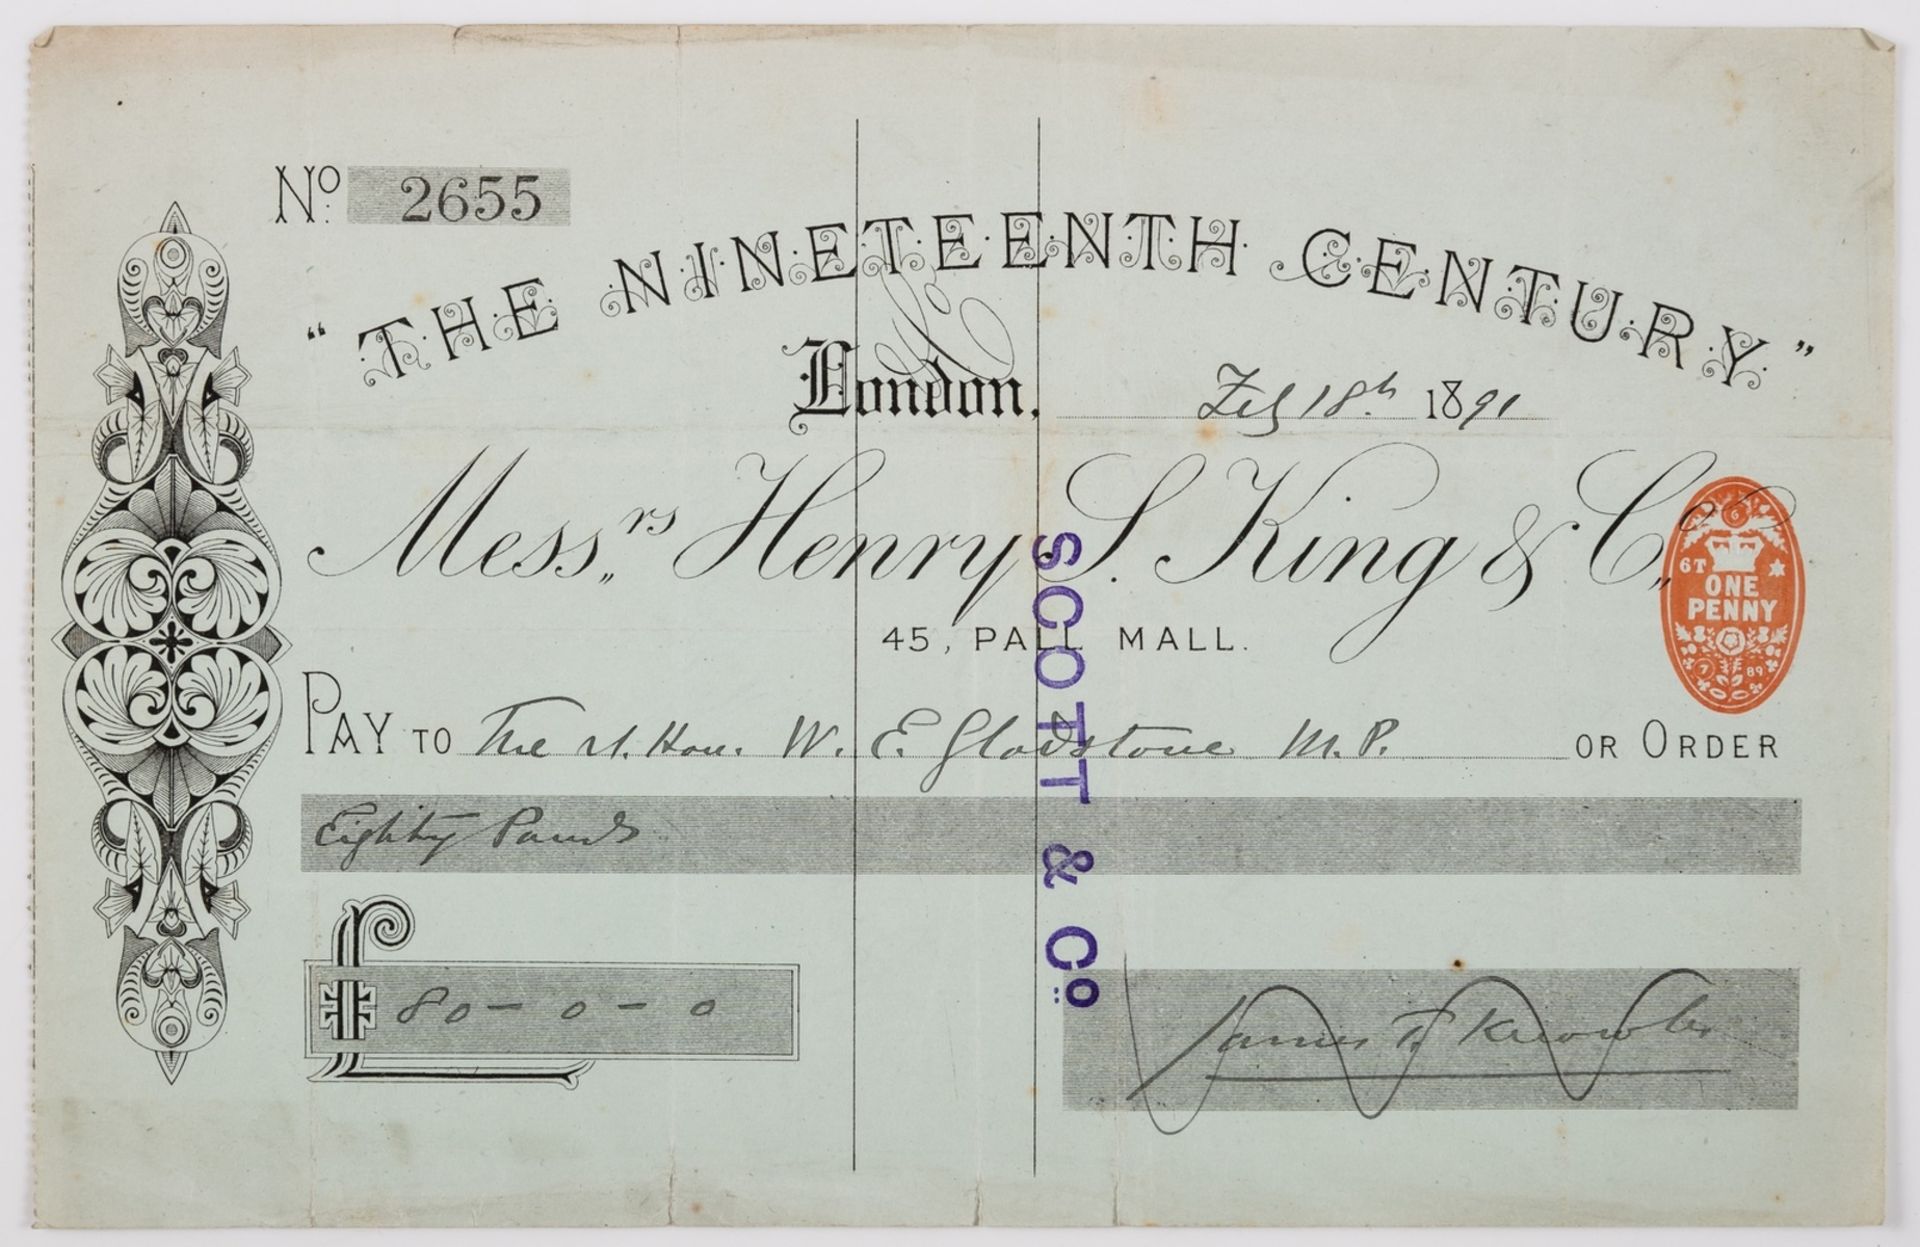 No. 2655
"THE NINETEENTH CENTURY"
& Co.
London, Feb 18th 1891
Messrs Henry S. King & Co.
45, PALL MALL.
6
6T
ONE
PENNY
7 89
PAY TO The rt. Hon. W. E. Gladstone M.P. OR ORDER
Eighty Pounds
£ 80 - 0 - 0
James T. Knowles
SCOTT & Co.